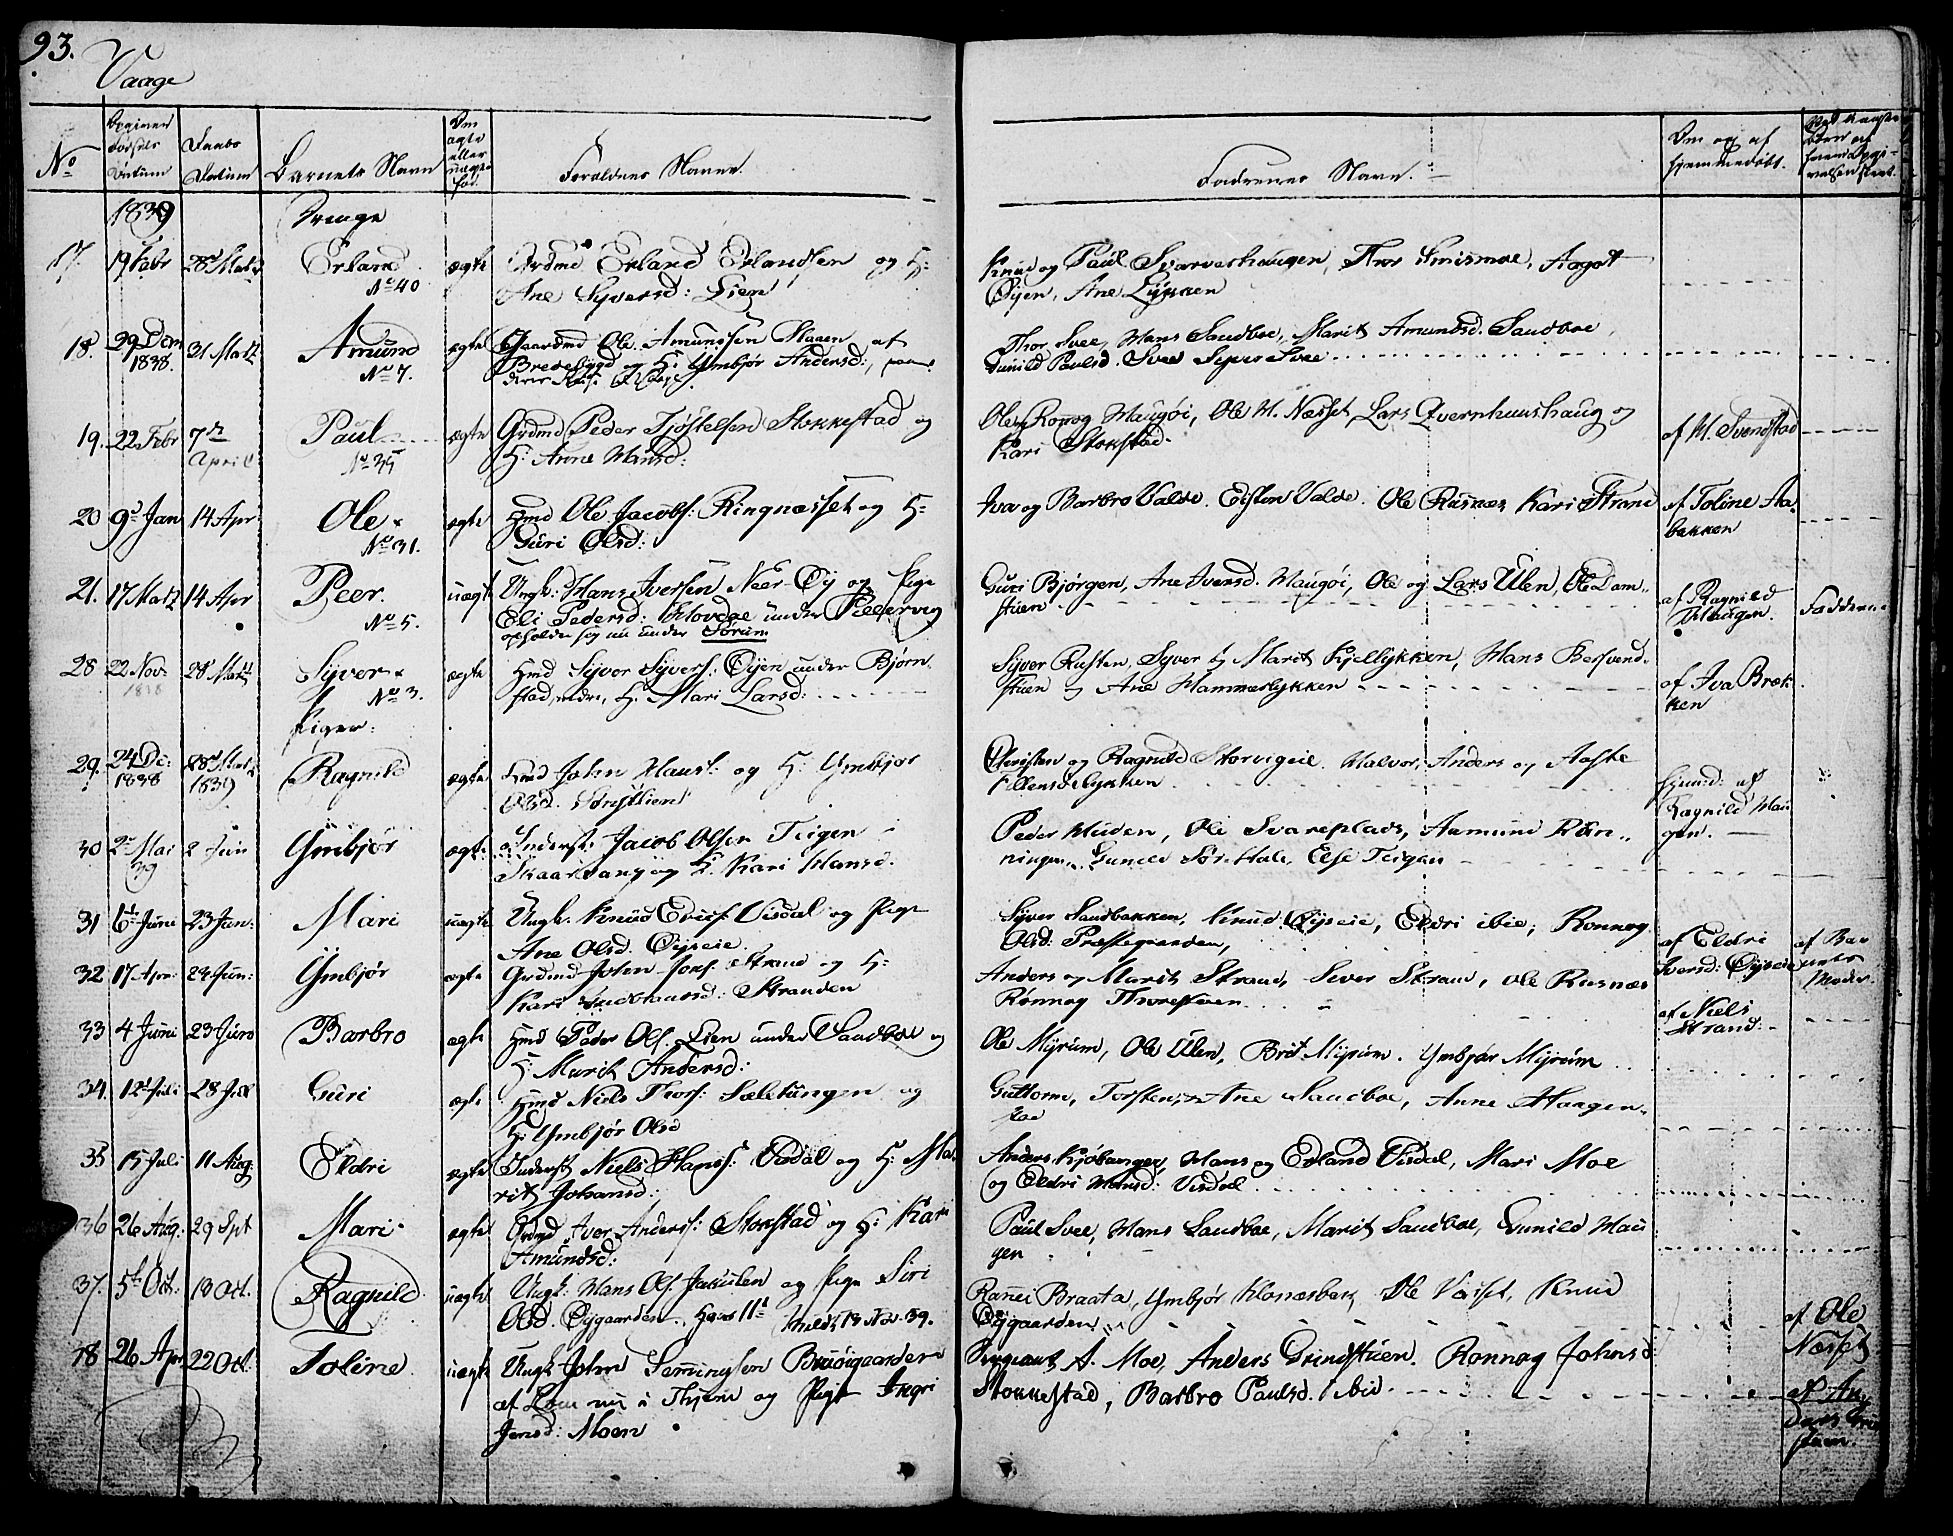 93.
Vaage
No
Opgiven Fødsels Datum
Daabs Datum
Barnets Navn
Om ægte eller uægte fød.
Forældres Navne.
Faddernes Navn.
Om og af hjemmedøbt.
1839
Drenge
17. 19 Febr 28 Martz Erland No 40 ægte Grdmd Erland Erlandsen og H:
Ane Syversd: Lien
Knud og Paul Svarveshaugen, Thor Smismoe, Aagot
Øyen, Ane Lykken
18. 29 Decm 1838. 31 Martz Amund No 7. ægte Gaardmd Ole Amundsen Staaen af
Bredebygd og H: Ymbjør Andersd:,
Thor Svee, Hans Sandboe, Marit Amundsd. Sandboe,
Gunild Paulsd. Svee Syver Svee
19. 22 Febr 7de April Paul No 35 ægte Grdmd Peder Tjøstelsen Stokkestad og
H: Anne Hansd:
Ole, Ronog Haugøi, Ole H. Næsset, Lars Qvernhuushaug og
Kari Stokstad.
af H. Svendstad
20 9d Jan 14 Apr Ole No 31. ægte Hmd Ole Jacobs: Ringnæsset og H:
Guri Olsd:
Iva og Barbro Valde. Eisten Valde. Ole Rusnæs Kari Strand
af Toline Aabakken
21. 17 Martz 14 Apr Peer. No 5. uægte Ungk: Hans Iversen Neer-Øy og Pige
Eli Pedersd: Hovdoe under Kleervig
opholder sig nu under Sorum
Guri Bjørgen, Ane Iversd. Haugøi, Ole og Lars Ulen, Ole Dam-
stuen
af Ragnild Haugen.
Fadderne
28 22 Nov: 1838 28 Martz Syver No 3. ægte Hmd Syver Syvers: Øyen under Bjørn
stad, nedre, H. Mari Larsd:
Syver Rusten, Syver og Marit Kjellykken, Hans Besvend-
stuen og Ane Hammerlykken
af Iva Brækken
Piger:
29. 24 De: 1838 28d Martz 1839 Ragnild ægte Hmd John Hans: og H: Ymbjør
Olsd.
Christen og Ragnild Storvigeie. Halvor, Anders og Aaste
Ellensdelykken
hjemd: af Ragnild Haugen.
30 2n Mai 39 2 Juni Ymbjør ægte Inderst: Jacob Olsen Teigen
Skaarvang og H. Kari Hansd:
Peder Huden, Ole Svareplads, Aamund Røn-
ningen, Gunild Sørhale, Else Teigen
31 6te Juni 23 Jun: Mari uægte Ungk. Knud Erics: Visdal og Pige
Ane Olsd. Øyseie.
Syver Sandbakken, Knud Øyseie, Eldri ibid; Ronnog
Olsd: Præstegaarden,
af Eldri Iversd: Øyseie
af Barnets Moder.
32 17 Apr: 24 Jun: Ymbjør ægte Grdmd John Jons: Strand og H:
Kari Gudbrandsd: Stranden
Anders og Marit Strand, Siver Strand, Ole Rusnæs
Rønnog Thorestuen
af Niels Strand:
33 4 Juni 23 Juni Barbro ægte Hmd Peder Ols. Lien under Sandboe og
H: Marit Andersd:
Ole Myrum, Ole Ulen, Brit Myrum. Ymbjør Myrum
34. 12 Juli 28 Juli Guri ægte Hmd Niels Thors: Sæletungen og
H: Ymbjør Olsd
Guttorm, Torsten, Ane Sandboe, Anne Haagen-
stad
35 15 Juli 11 Aug: Eldri ægte Inderst Niels Hans: Visdal og H: Ma-
rit Johansd:
Anders Kjøbanger, Hans og Erland Visdal, Mari Moe
og Eldri Hansd: Visdal
36 26 Aug: 29 Spt Mari ægte Grdmd Iver Anders: Stokstad og H: Kari
Amundsd:
Paul Svee, Hans Sandboe, Marit Sandboe, Gunild Hau
gen
37. 5te Oct: 13 Oct. Ragnild uægte Ungk: Hans Ols. Jakulen og Pige Siri
Olsd. Øygaarden.
Rannei Braata, Ymbjør Klonæsbak, Ole Væset, Knud
Øygaarden
af Ole Næset
38 26 Apr 22 Oct. Toline. uægte Ungk: John Semingsen Bruøigaarden
af Lom nu i Thjem og Pige Ingri
Jensd: Moen
Sergeant A. Moe, Anders Grindstuen. Ronnog Johnsd
Stokkestad, Barbro Paulsd. ibid.
af Anders Grindstuen.